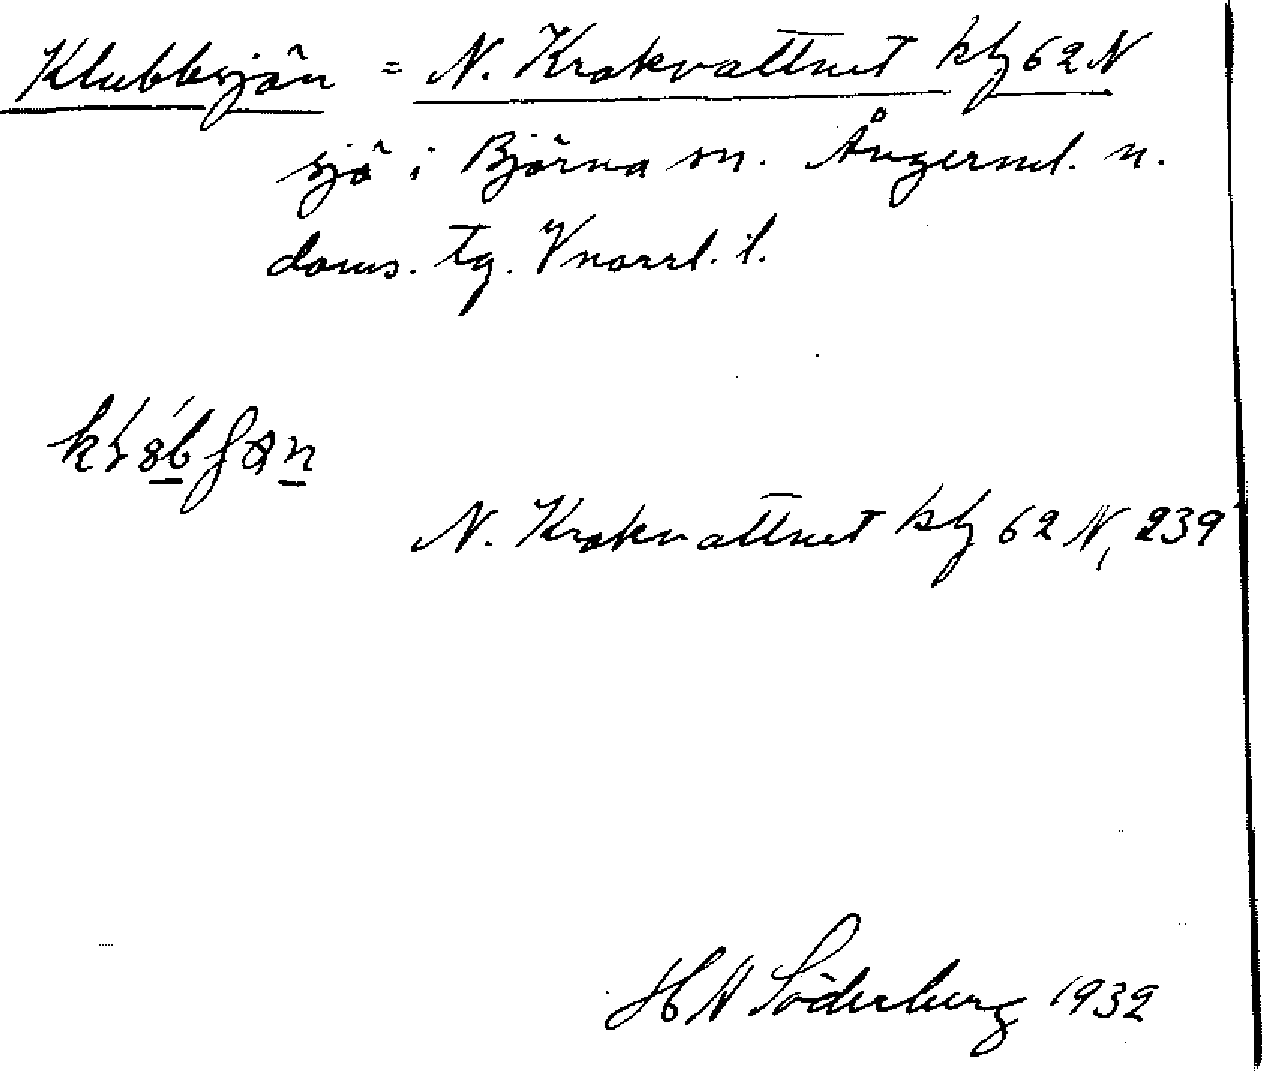 Klubbsjön = N. Krokvattnet kbl 62 N
sjö i Björna sn. Ångerml. n.
doms. tg. Vnorrl. l.
N. Krokvattnet kbl 62 N, 239
H N Söderberg 1932